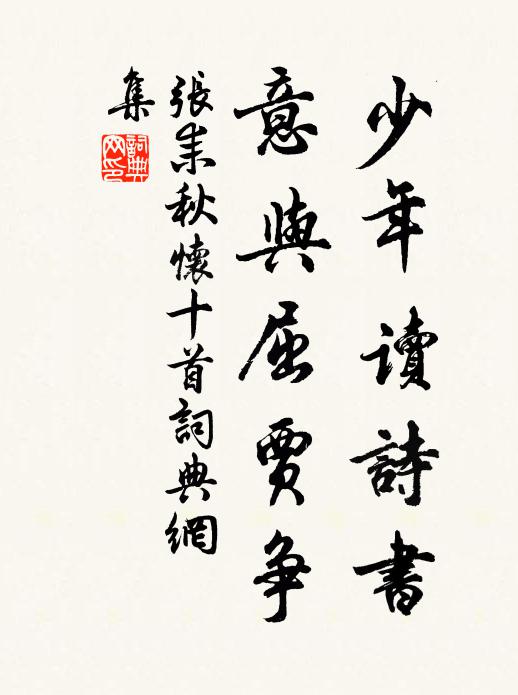 少年讀詩書
意與屈賈爭
張耒秋懷十首詞典網
集
詞典
网印